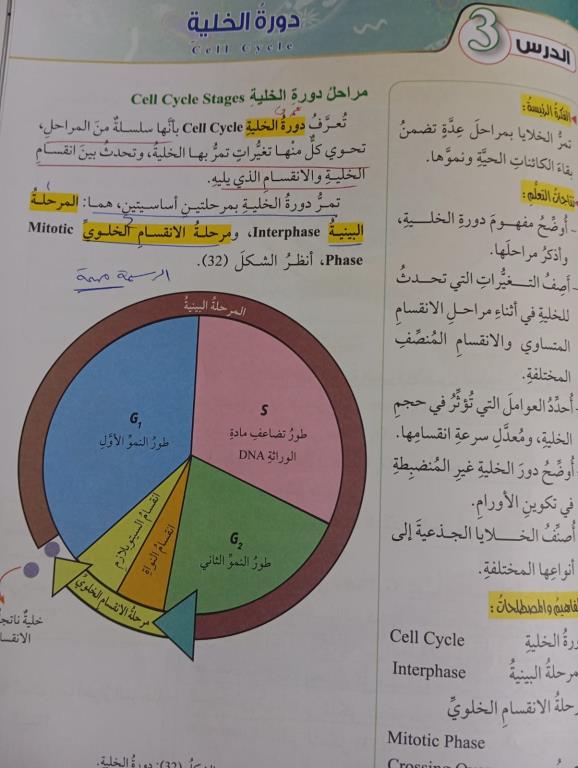 الدرس 3
دورةُ الخلية
Cell Cycle
الفكرةُ الرئيسةُ :
تمرُّ الخلايا بمراحلَ عِدَّةٍ تضمنُ
بقاءَ الكائناتِ الحيَّةِ ونموَّها.
نتاجاتُ التعلُّمِ :
- أُوضِّحُ مفهومَ دورةِ الخليةِ،
وأذكرُ مراحلَها.
- أَصِفُ التغيُّراتِ التي تحدثُ
للخليةِ في أثناءِ مراحلِ الانقسامِ
المتساوي والانقسامِ المُنصِّفِ
المختلفةِ.
- أُحدِّدُ العواملَ التي تُؤثِّرُ في حجمِ
الخليةِ، ومُعدَّلِ سرعةِ انقسامِها.
- أُوضِّحُ دورَ الخليةِ غيرِ المُنضبِطةِ
في تكوينِ الأورامِ.
أُصنِّفُ الخلايا الجذعيةَ إلى
أنواعِها المختلفةِ.
المفاهيمُ والمصطلحاتُ :
دورةُ الخليةِ Cell Cycle
المرحلةُ البينيةُ Interphase
مرحلةُ الانقسامِ الخلويِّ
Mitotic Phase
مراحلُ دورةِ الخليةِ Cell Cycle Stages
تُعرَّفُ دورةُ الخليةِ Cell Cycle بأنَّها سلسلةٌ منَ المراحلِ،
تحوي كلٌّ منْها تغيُّراتٍ تمرُّ بها الخليةُ، وتحدثُ بينَ انقسامِ
الخليةِ والانقسامِ الذي يليهِ.
تمرُّ دورةُ الخليةِ بمرحلتينِ أساسيتينِ، هما: المرحلةُ
البينيةُ Interphase، ومرحلةُ الانقسامِ الخلويِّ Mitotic
Phase، أنظرُ الشكلَ (32).
الرسمة مهمة
المرحلةُ البينيةُ
G1
طورُ النموِّ الأوَّلِ
S
طورُ تضاعفِ مادةِ
الوراثةِ DNA
G2
طورُ النموِّ الثاني
انقسامُ السيتوبلازم
انقسامُ النواةِ
مرحلةُ الانقسامِ الخلويِّ
خليةٌ
(32): دورةُ الخليةِ.